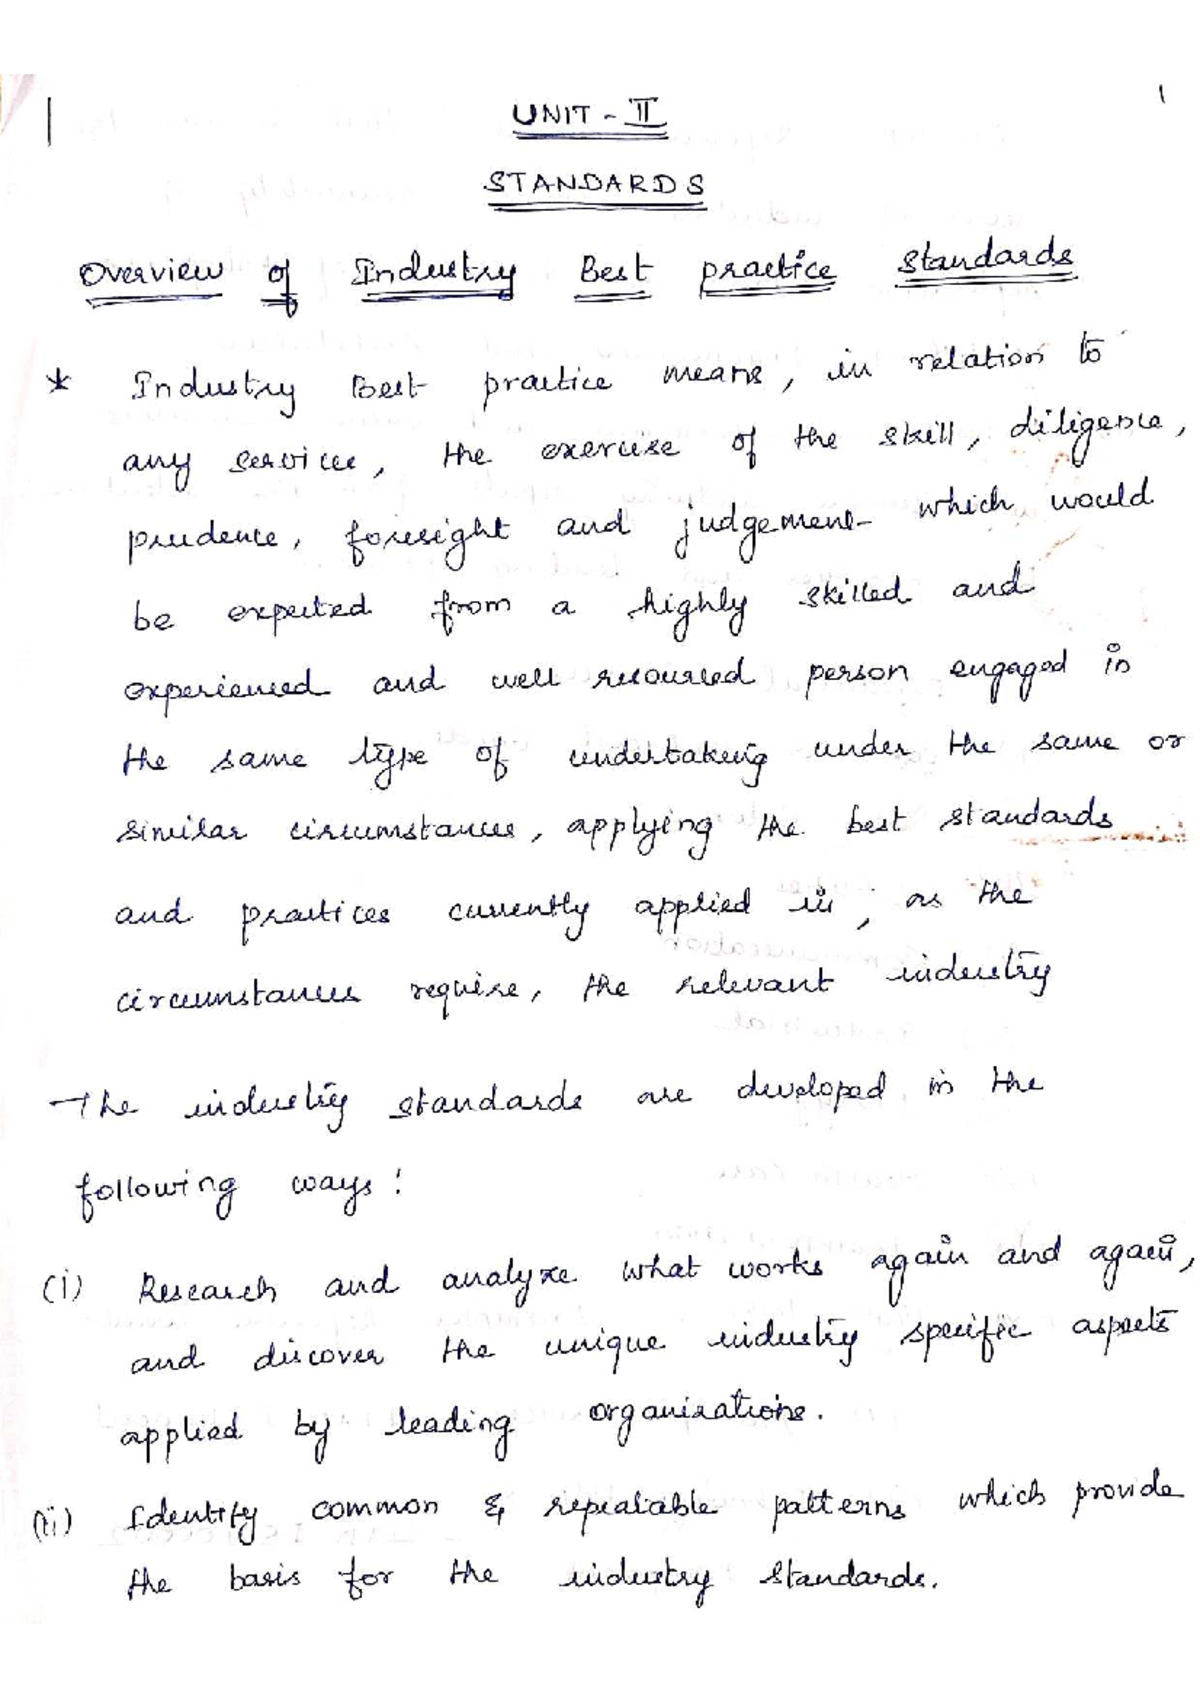 1
UNIT - II
STANDARDS
Overview of Industry Best practice standards
* Industry Best practice means, in relation to
any service, the exercise of the skill, diligence,
prudence, foresight and judgement which would
be expected from a highly skilled and
experienced and well resourced person engaged in
the same type of undertaking under the same or
similar circumstances, applying the best standards
and practices currently applied in, as the
circumstances require, the relevant industry
The industry standards are developed in the
following ways:
(i) Research and analyze what works again and again,
and discover the unique industry specific aspects
applied by leading organizations.
(ii) Identify common & repeatable patterns which provide
the basis for the industry standards.